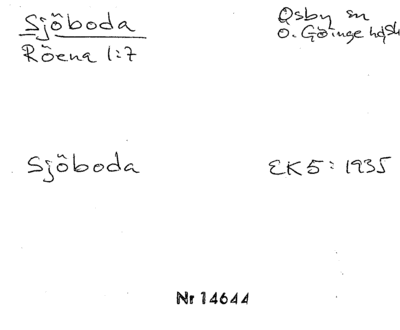 Sjöboda
Osby sn
Röena 1:7
Ö. Göinge hd, Sk
Sjöboda
EK5: 1935
Nr 14644